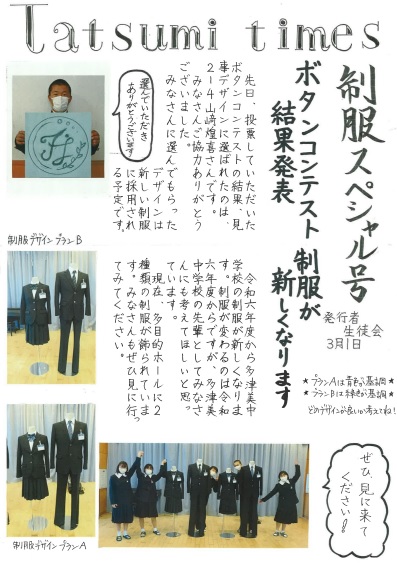 Tatsumi times
制服スペシャル号
ボタンコンテスト
結果発表
制服が
新しくなります
発行者
生徒会
3月1日
★プランAは青色が基調★
★プランBは緑色が基調★
どのデザインが良いか考えてね！
先日、投票していただいた
ボタンコンテストの結果、見
事デザインに選ばれたのは、
2-4山﨑煌喜さんです。
みなさんご協力ありがとう
ございました。
みなさんに選んでもらった
デザインは
新しい制服
に採用され
る予定です。
選んでいただき
ありがとうございます
制服デザイン プランB
令和六年度から多津美中
学校の制服が新しくなりま
す。制服が変わるのは令和
六年度からですが、多津美
中学校の先輩としてみなさ
んにも考えてほしいと思っ
ています。
現在、多目的ホールに2
種類の制服が飾られていま
す。みなさんもぜひ見に行っ
てみてください。
制服デザイン プランA
ぜひ、見に来て
ください！